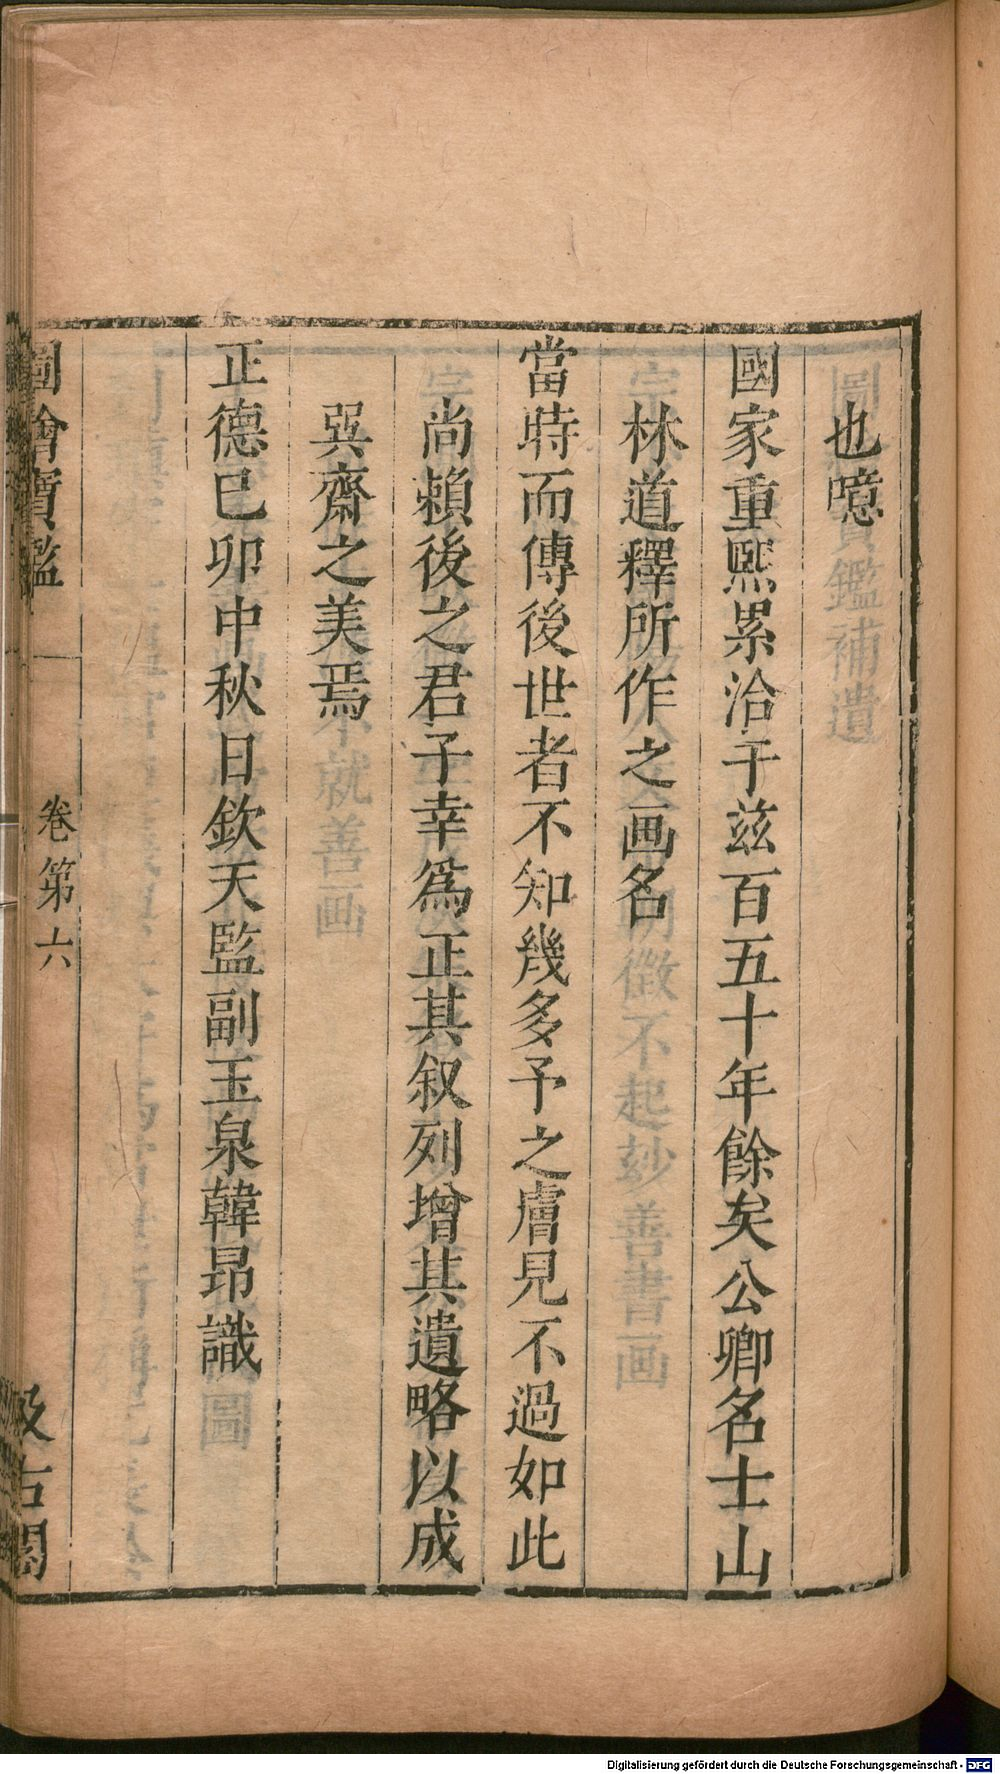 也噫
國家重熙累洽于兹百五十年餘矣公卿名士山
林道釋所作之画名
當時而傳後世者不知幾多予之膚見不過如此
尚賴後之君子幸爲正其叙列增其遺略以成
巽齋之美焉
正德己卯中秋日欽天監副玉泉韓昂識
圖繪寶鑑
卷第六
汲古閣
Digitalisierung gefördert durch die Deutsche Forschungsgemeinschaft - DFG